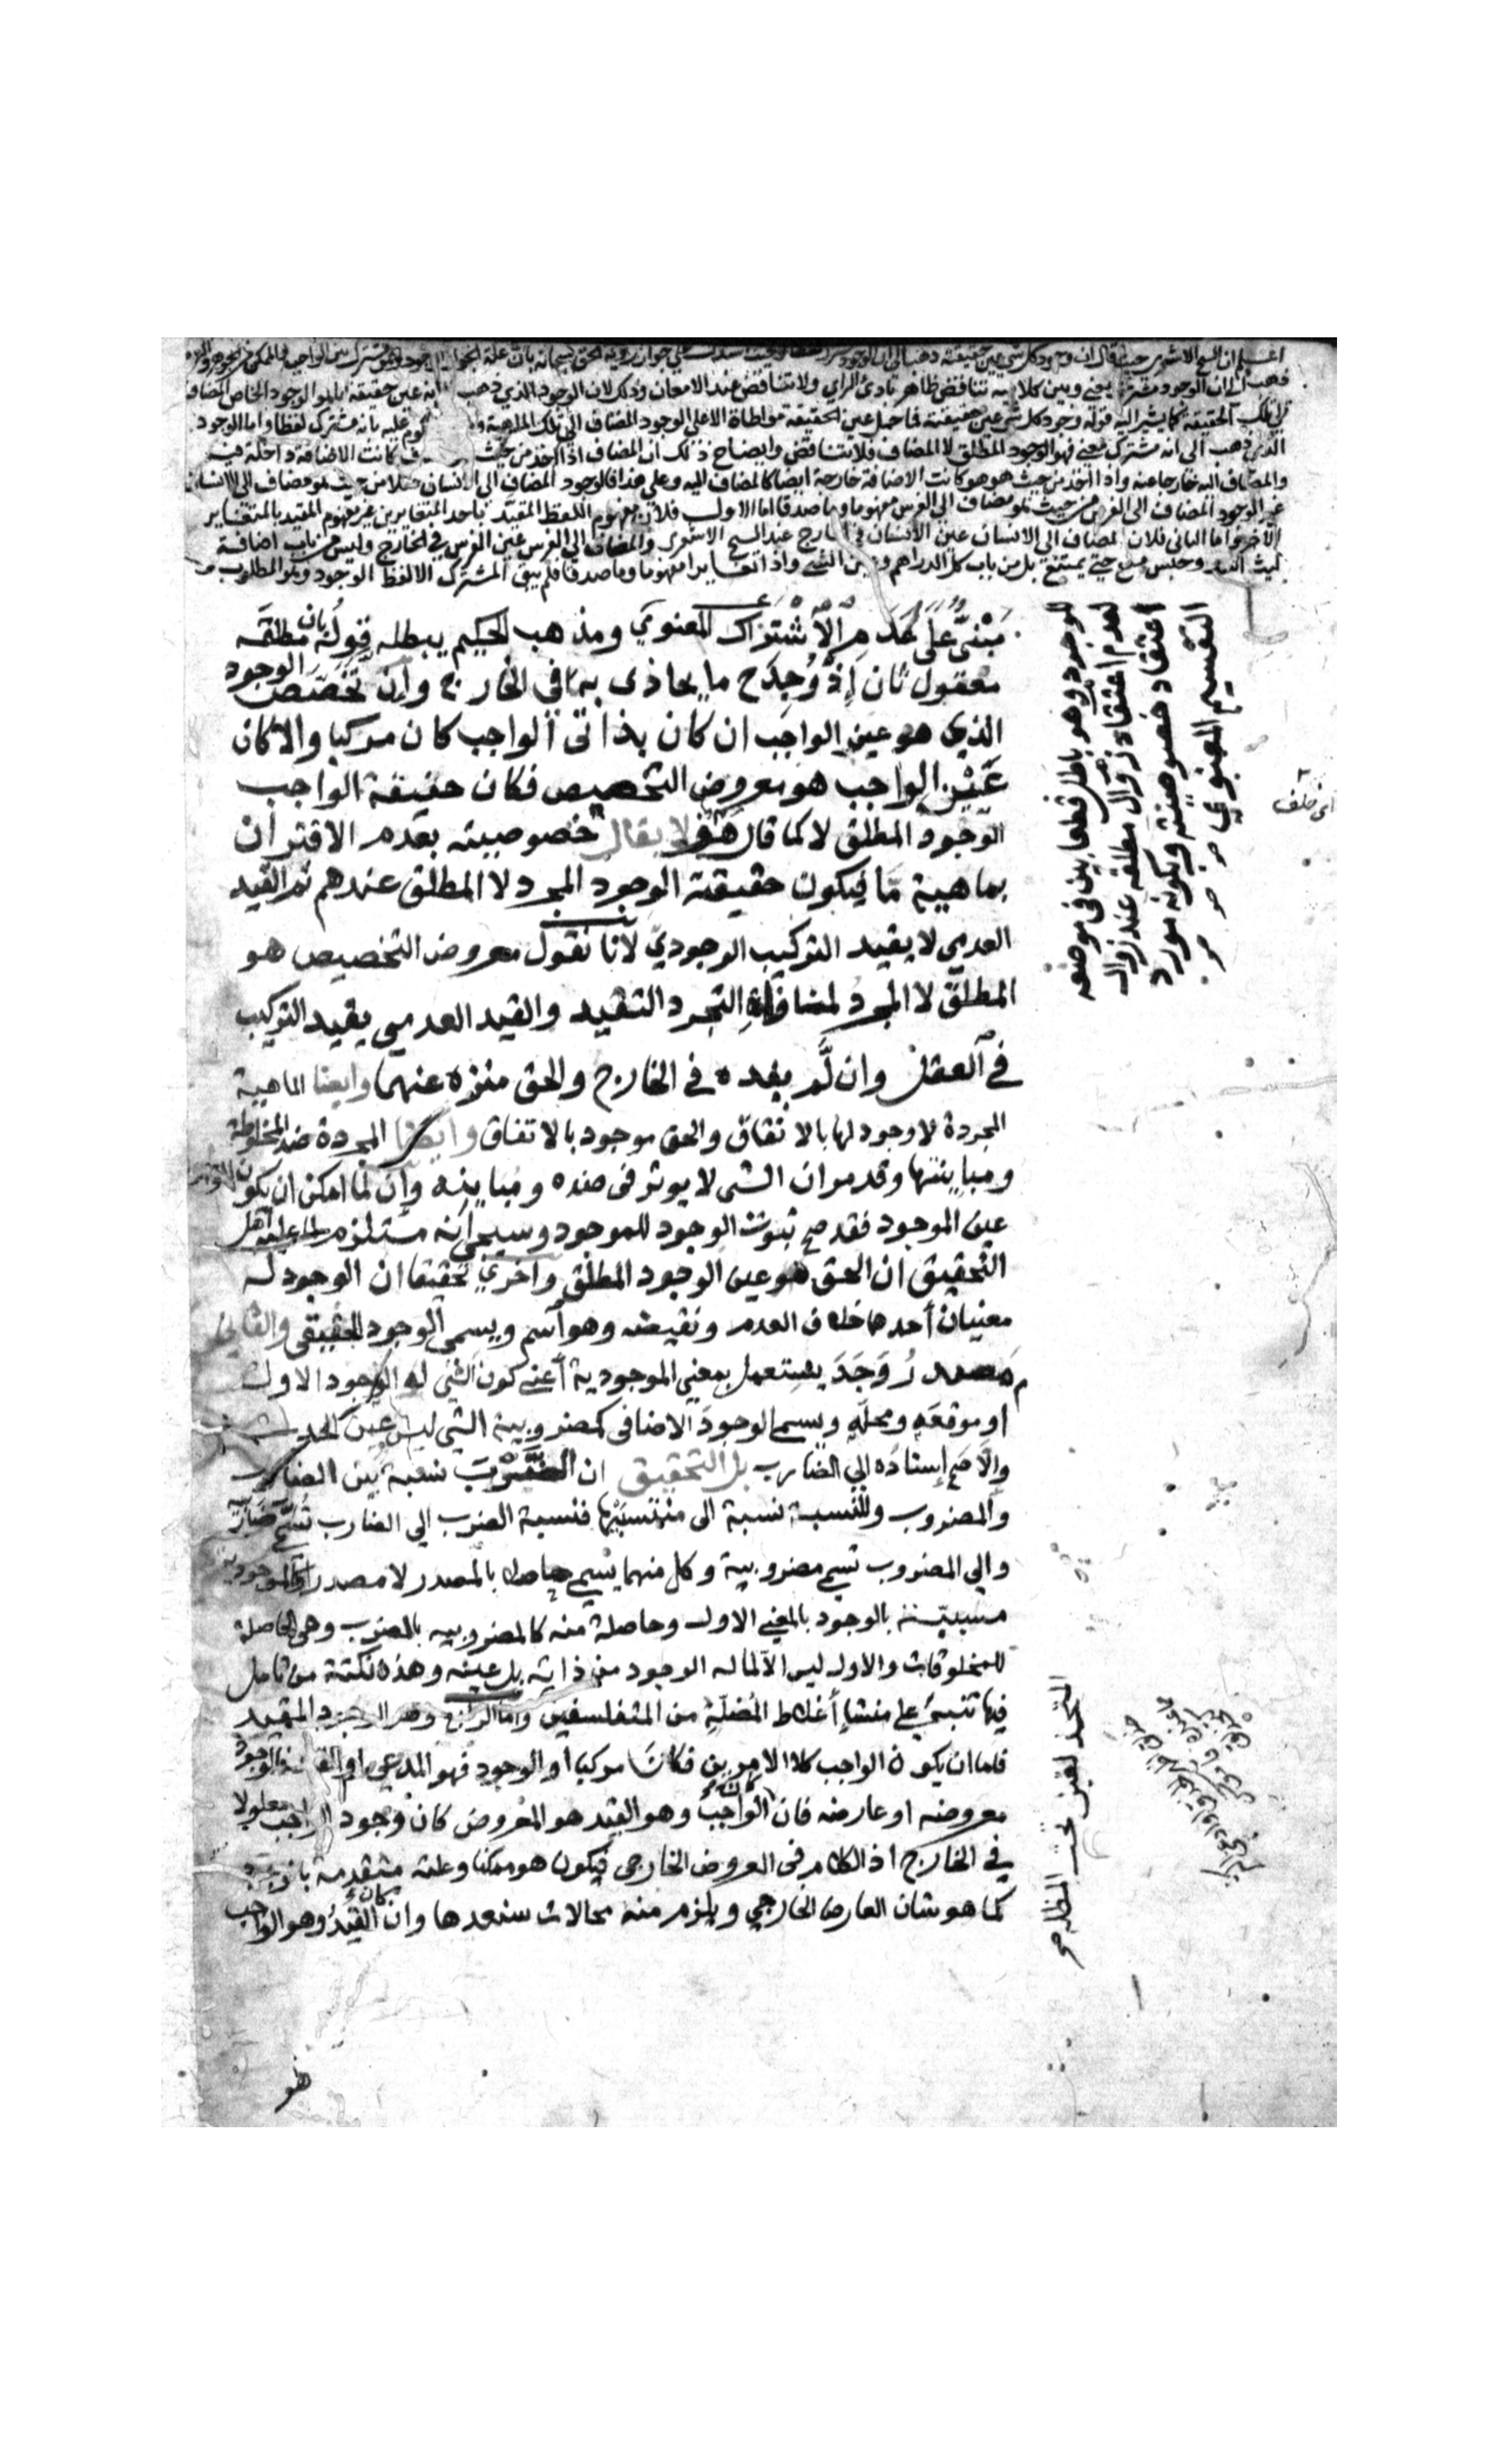 اعلم ان الشيخ الاشعري حيث قال ان وجود كل شي عين حقيقته
فذهب الى ان الوجود مشترك معنى وبين كلاميه تناقض ظاهر بادئ الراي ولا تناقض عند الامعان وذلك لان الوجود الذي ذهب انه عين حقيقته انما هو الوجود الخاص المضاف
الى تلك الحقيقة كما يشير اليه قوله وجود كل شي عين حقيقته فما حمل عين الحقيقة مواطاة الا على الوجود المضاف الى تلك الماهية عليه بانه مشترك لفظا واما الوجود
الذي ذهب الى انه مشترك معنى فهو الوجود المطلق لا المضاف فلا تناقض وايضاح ذلك ان المضاف اذا اخذ من حيث كانت الاضافة داخلة فيه
والمضاف اليه خارجا عنه واذا اخذ من حيث هو هو كانت الاضافة خارجة ايضا كالمضاف اليه وعلى هذا فالوجود المضاف الى الانسان مثلا من حيث هو مضاف الى الانسان
غير الوجود المضاف الى الفرس من حيث هو مضاف الى الفرس مفهوما وماصدقا اما الاول فلان مفهوم اللفظ المقيد باحد المتغايرين غير مفهوم المقيد بالمتغاير
الآخر واما الثاني فلان المضاف الى الانسان عين الانسان في الخارج عند الشيخ الاشعري والمضاف الى الفرس عين الفرس في الخارج وليس من باب اضافة
حتى يمتنع بل من باب كل الدراهم وعين الشي واذا تغايرا مفهوما وماصدقا فلم يبق المشترك الا لفظ الوجود وهو المطلوب
مبني على عدم الاشتراك المعنوي ومذهب الحكيم يبطله قوله بان مطلقه
معقول ثان اذ وجد ح ما يحاذى به في الخارج وان تخصص الوجود
الذي هو عين الواجب ان كان بذاتي الواجب كان مركبا والا كان
عين الواجب هو معروض التخصيص فكان حقيقة الواجب
الوجود المطلق لا كما قال هف لا يقال خصوصيته بعدم الاقتران
بماهية ما فيكون حقيقة الوجود المجرد لا المطلق عندهم ثم القيد
العدمي لا يفيد التركيب الوجودي لانا نقول معروض التخصيص هو
المطلق لا المجرد لمنافاة التجرد التقييد والقيد العدمي يفيد التركيب
في العقل وان لم يفده في الخارج والحق منزه عنهما وايضا الماهية
المجردة لا وجود لها بالاتفاق والحق موجود بالاتفاق وايضا المجردة ضد المخلوطة
ومباينتها وقد مر ان الشي لا يوثر في ضده ومباينه وان لما امكن ان يكون
عين الموجود فقد صح ثبوت الوجود للموجود وسيجي انه مستلزم لما عليه اهل
التحقيق ان الحق هو عين الوجود المطلق واخرى تحقيقا ان الوجود له
معنيان أحدهما خلاف العدم ونقيضه وهو اسم ويسمى الوجود الحقيقي والثاني
مصدر وَجَدَ يستعمل بمعنى الموجودية أعني كون الشي له الوجود الاول
او موقعه ومحله ويسمى الوجود الاضافي كمضروبية الشي ليس عين الحدث
والا صح إسناده الى الضارب بل التحقيق ان الضرب نسبة بين الضارب
والمضروب وللنسبة نسبة الى منتسبيها فنسبة الضرب الى الضارب تسمى ضاربية
والى المضروب تسمى مضروبية وكل منهما يسمى حاصلا بالمصدر لا مصدرا فالموجودية
مسببة بالوجود بالمعنى الاول وحاصلة منه كالمضروبيه بالضرب وهي الحاصلة
للمخلوقات والاول ليس الا لما له الوجود من ذاته بل عينه وهذه نكتة من تأمل
فيها تنبه على منشأ أغلاط المضلة من المتفلسفين واما الرابع وهو الوجود المقيد
فاما ان يكون الواجب كلا الامرين فكان مركبا او الوجود فهو المدعى او القيد فالوجود
معروضه او عارضه فان كان الواجب وهو القيد هو المعروض كان وجود الواجب معلولا
في الخارج اذ الكلام في العروض الخارجي فيكون هو ممكنا وعلته متقدمة بالوجود
كما هو شان العارض الخارجي ويلزم منه محالات سنعدها وان كان القيد وهو الواجب
هو
للوجود وهو باطل قطعا بين في موضعه
لعدم اعتقاد زوال مطلقه عند زوال
اعتقاد خصوصيته وكونه مورد
التقسيم المعنوي
اي خلف